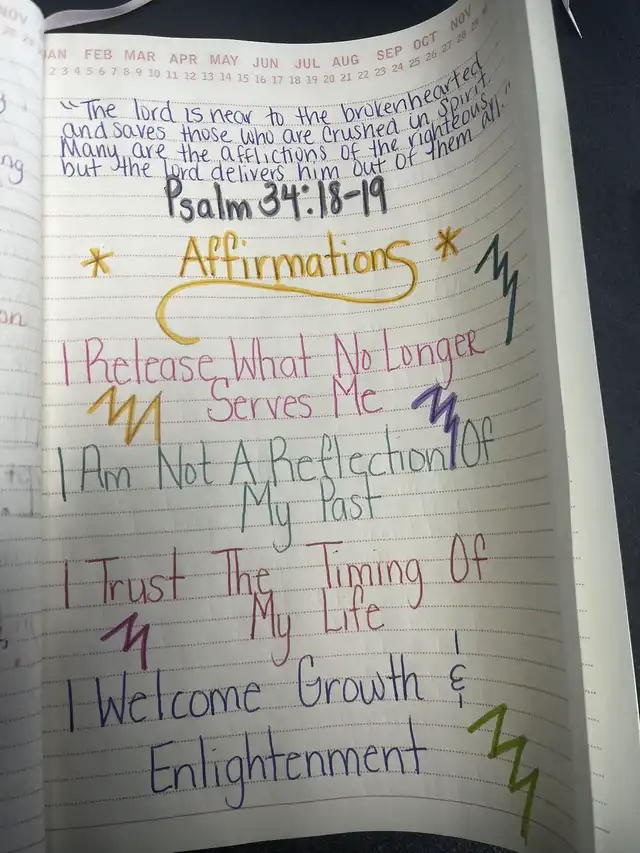 NOV
JAN FEB MAR APR MAY JUN JUL AUG SEP OCT NOV
2 3 4 5 6 7 8 9 10 11 12 13 14 15 16 17 18 19 20 21 22 23 24 25 26 27 28 29
"The lord is near to the brokenhearted
and saves those who are crushed in spirit.
Many are the afflictions of the righteous,
but the lord delivers him out of them all."
Psalm 34:18-19
* Affirmations *
I Release What No Longer
Serves Me
I Am Not A Reflection Of
My Past
I Trust The Timing Of
My Life
I Welcome Growth &
Enlightenment